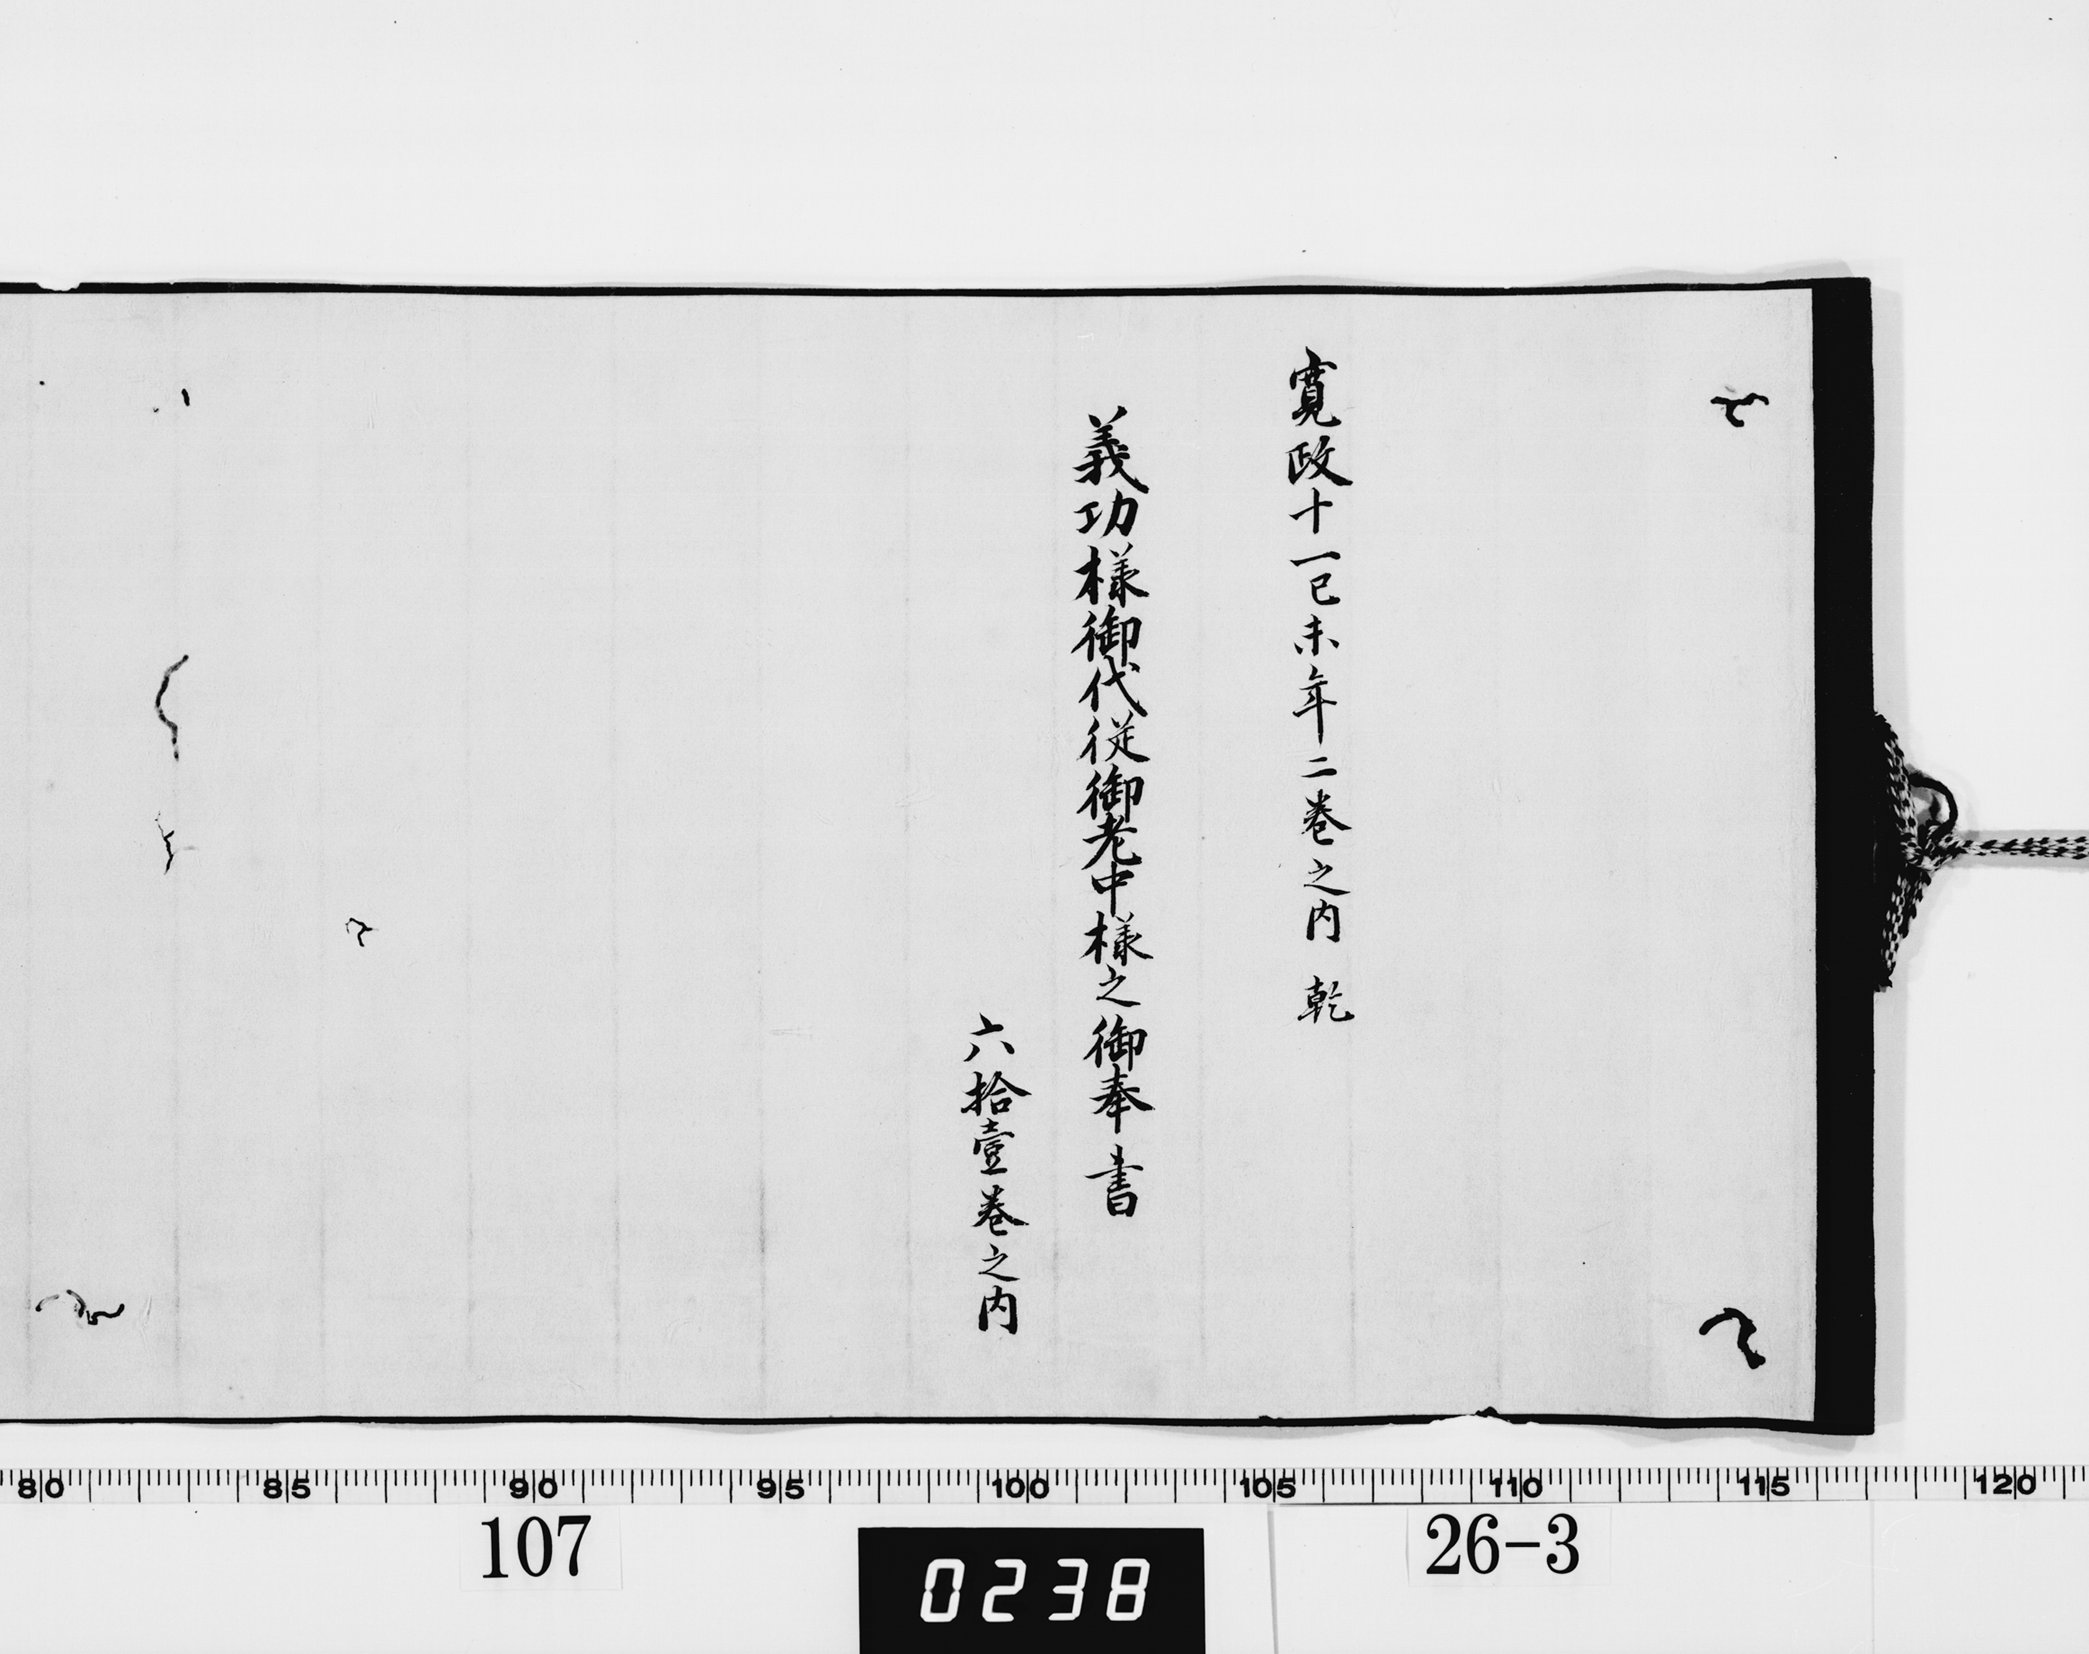 寛政十一己未年二巻之内　乾
義功様御代従御老中様之御奉書
六拾壹巻之内
80 85 90 95 100 105 110 115 120
107
0238
26-3